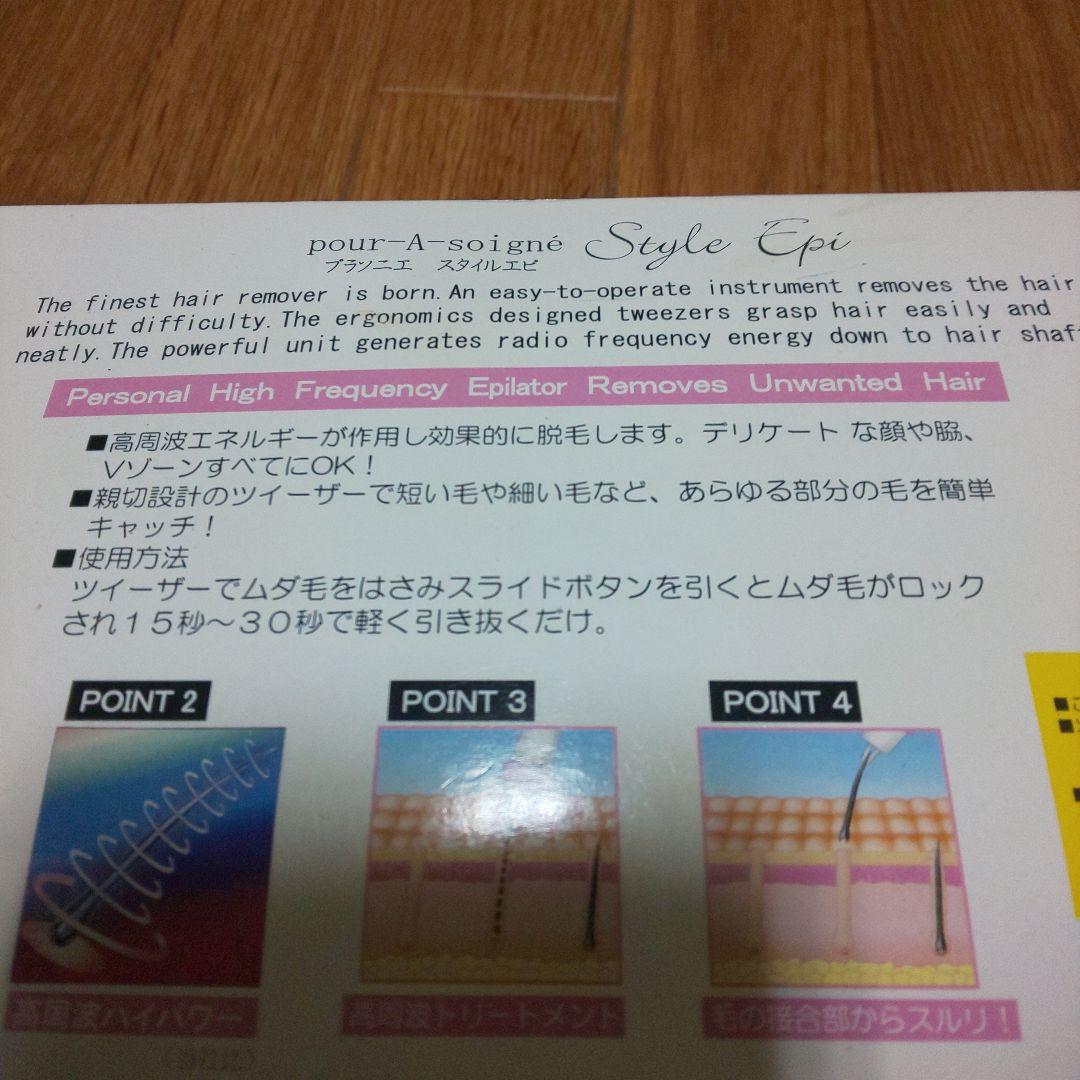 pour-A-soigné Style Epi
プラソニエ スタイルエピ
The finest hair remover is born. An easy-to-operate instrument removes the hair
without difficulty. The ergonomics designed tweezers grasp hair easily and
neatly. The powerful unit generates radio frequency energy down to hair shaf
Personal High Frequency Epilator Removes Unwanted Hair
■高周波エネルギーが作用し効果的に脱毛します。デリケートな顔や脇、
VゾーンすべてにOK！
■親切設計のツイーザーで短い毛や細い毛など、あらゆる部分の毛を簡単
キャッチ！
■使用方法
ツイーザーでムダ毛をはさみスライドボタンを引くとムダ毛がロック
され１５秒～３０秒で軽く引き抜くだけ。
POINT 2
POINT 3
POINT 4
高周波ハイパワー
高周波トリートメント
毛の接合部からスルリ！